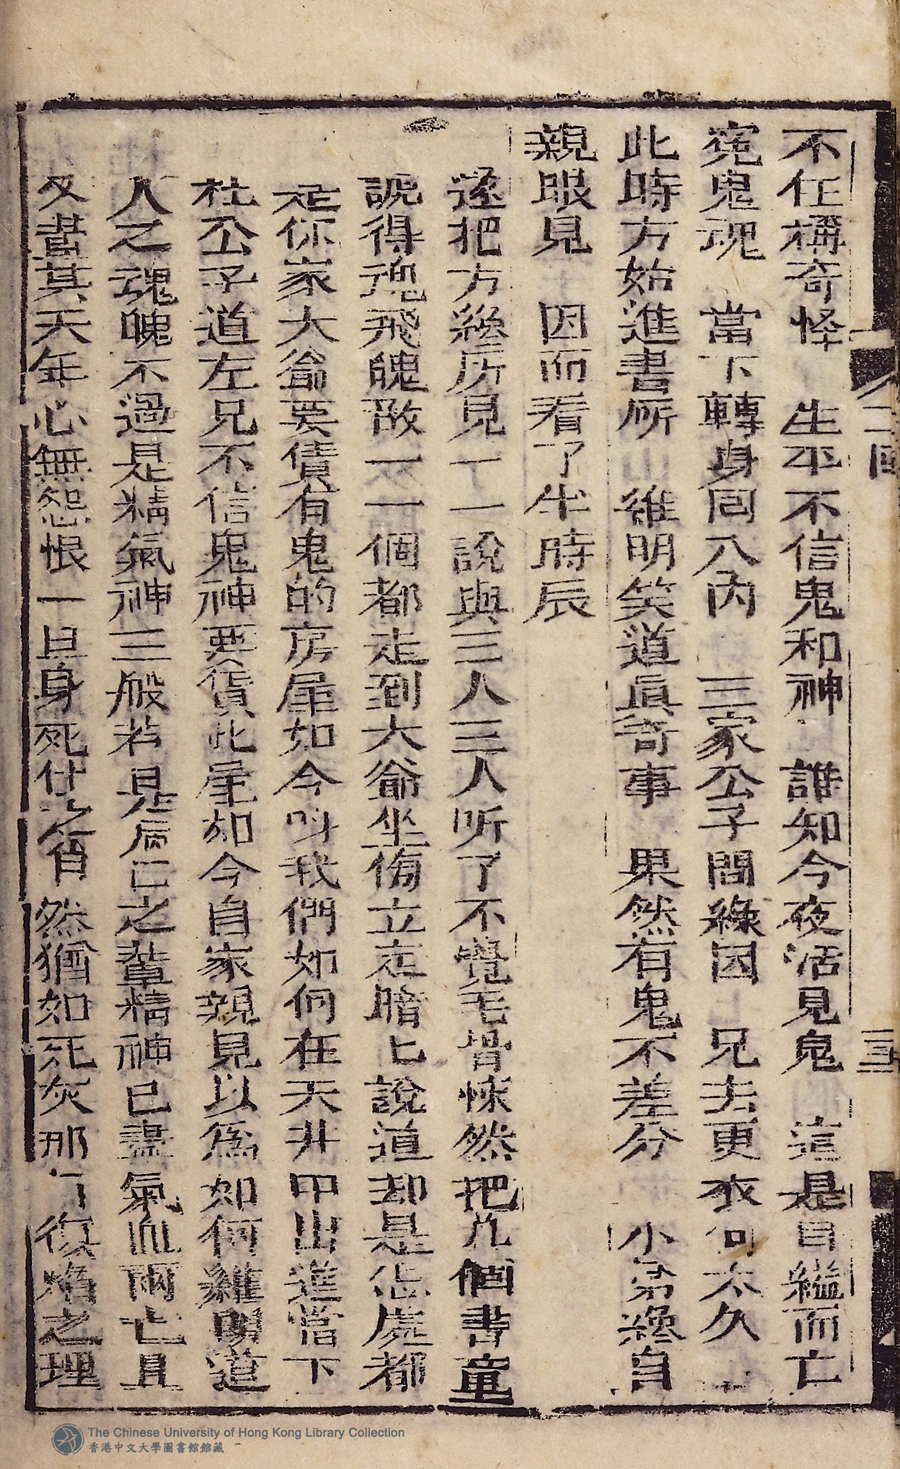 不住稱奇怪　生平不信鬼和神　誰知今夜活見鬼　這是自縊而亡
冤鬼魂　當下轉身回入內　三家公子問緣因　兄去更衣何太久
此時方始進書所　維明笑道眞奇事　果然有鬼不差分　小弟纔自
親眼見　因而看了半時辰
遂把方纔所見一一說與三人三人听了不覺毛骨悚然把几個書童
諕得魂飛魄散一一個都走到大爺坐傍立定暗匕說道却是怎處都
是你家大爺要債有鬼的房屋如今叫我們如何在天井中出進當下
杜公子道左兄不信鬼神要賃此屋如今自家親見以爲如何維明道
人之魂魄不過是精氣神三般若是病亡之輩精神已盡氣血兩亡且
又盡其天年心無怨恨一旦身死仕之自然猶如死灰那有復焰之理
二國
三五
The Chinese University of Hong Kong Library Collection
香港中文大學圖書館館藏